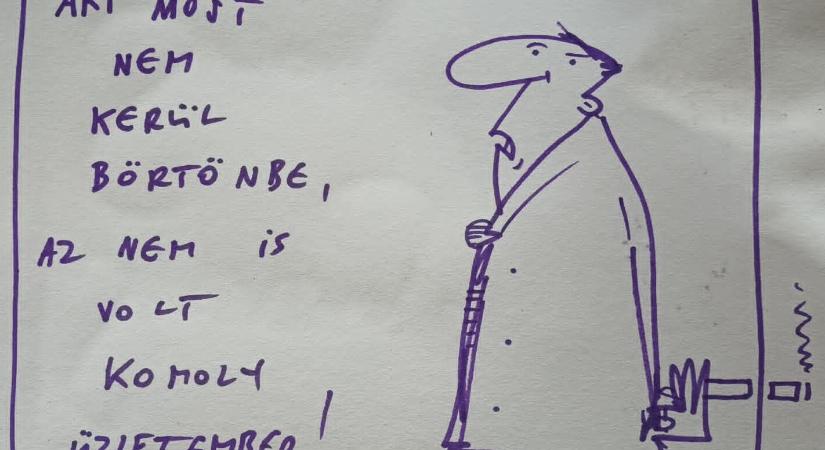 AKI MOST
NEM
KERÜL
BÖRTÖNBE,
AZ NEM IS
VOLT
KOMOLY
ÜZLETEMBER!